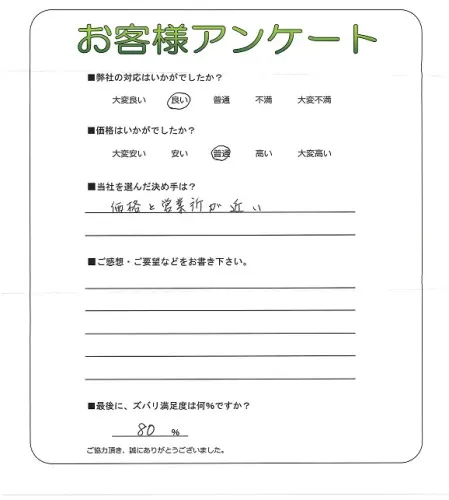 お客様アンケート
■弊社の対応はいかがでしたか？
大変良い 良い 普通 不満 大変不満
■価格はいかがでしたか？
大変安い 安い 普通 高い 大変高い
■当社を選んだ決め手は？
価格と営業所が近い
■ご感想・ご要望などをお書き下さい。
■最後に、ズバリ満足度は何％ですか？
80 ％
ご協力頂き、誠にありがとうございました。